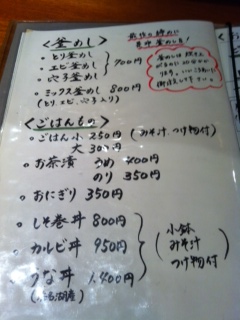 <釜めし>
。とり釜めし
。エビ釜めし
。穴子釜めし
700円
。ミックス釜めし 800円
(とり エビ、穴子入り)
最後の締めに
是非釜めしを!
釜めしは炊き上
<ごはんもの>
。ごはん 小 250円 (みそ汁、つけ物付)
大 300円
。お茶漬 うめ 400円
のり 350円
。おにぎり 350円
。しそ巻丼 800円
。カルビ丼 950円
。うな丼 1,400円
(浜名湖産)
(小鉢
みそ汁
つけ物付)